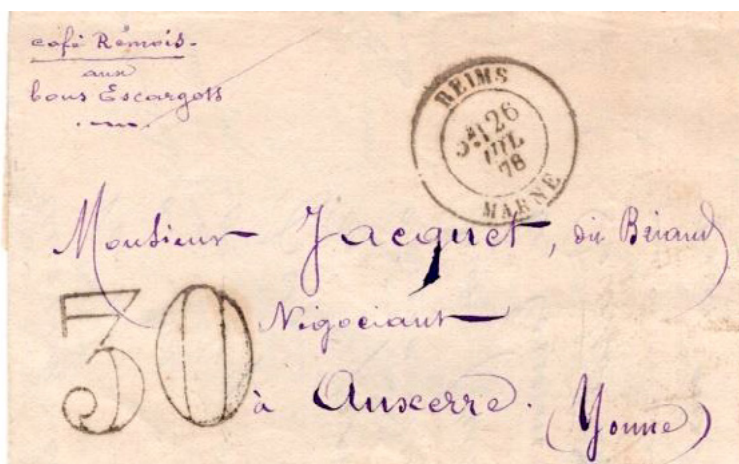 café Rémois-
aux
bons Escargots
REIMS
5E 26
JUIL
78
MARNE
Monsieur Jacquet, dit
30
Négociant
à Auxerre.
(Yonne)